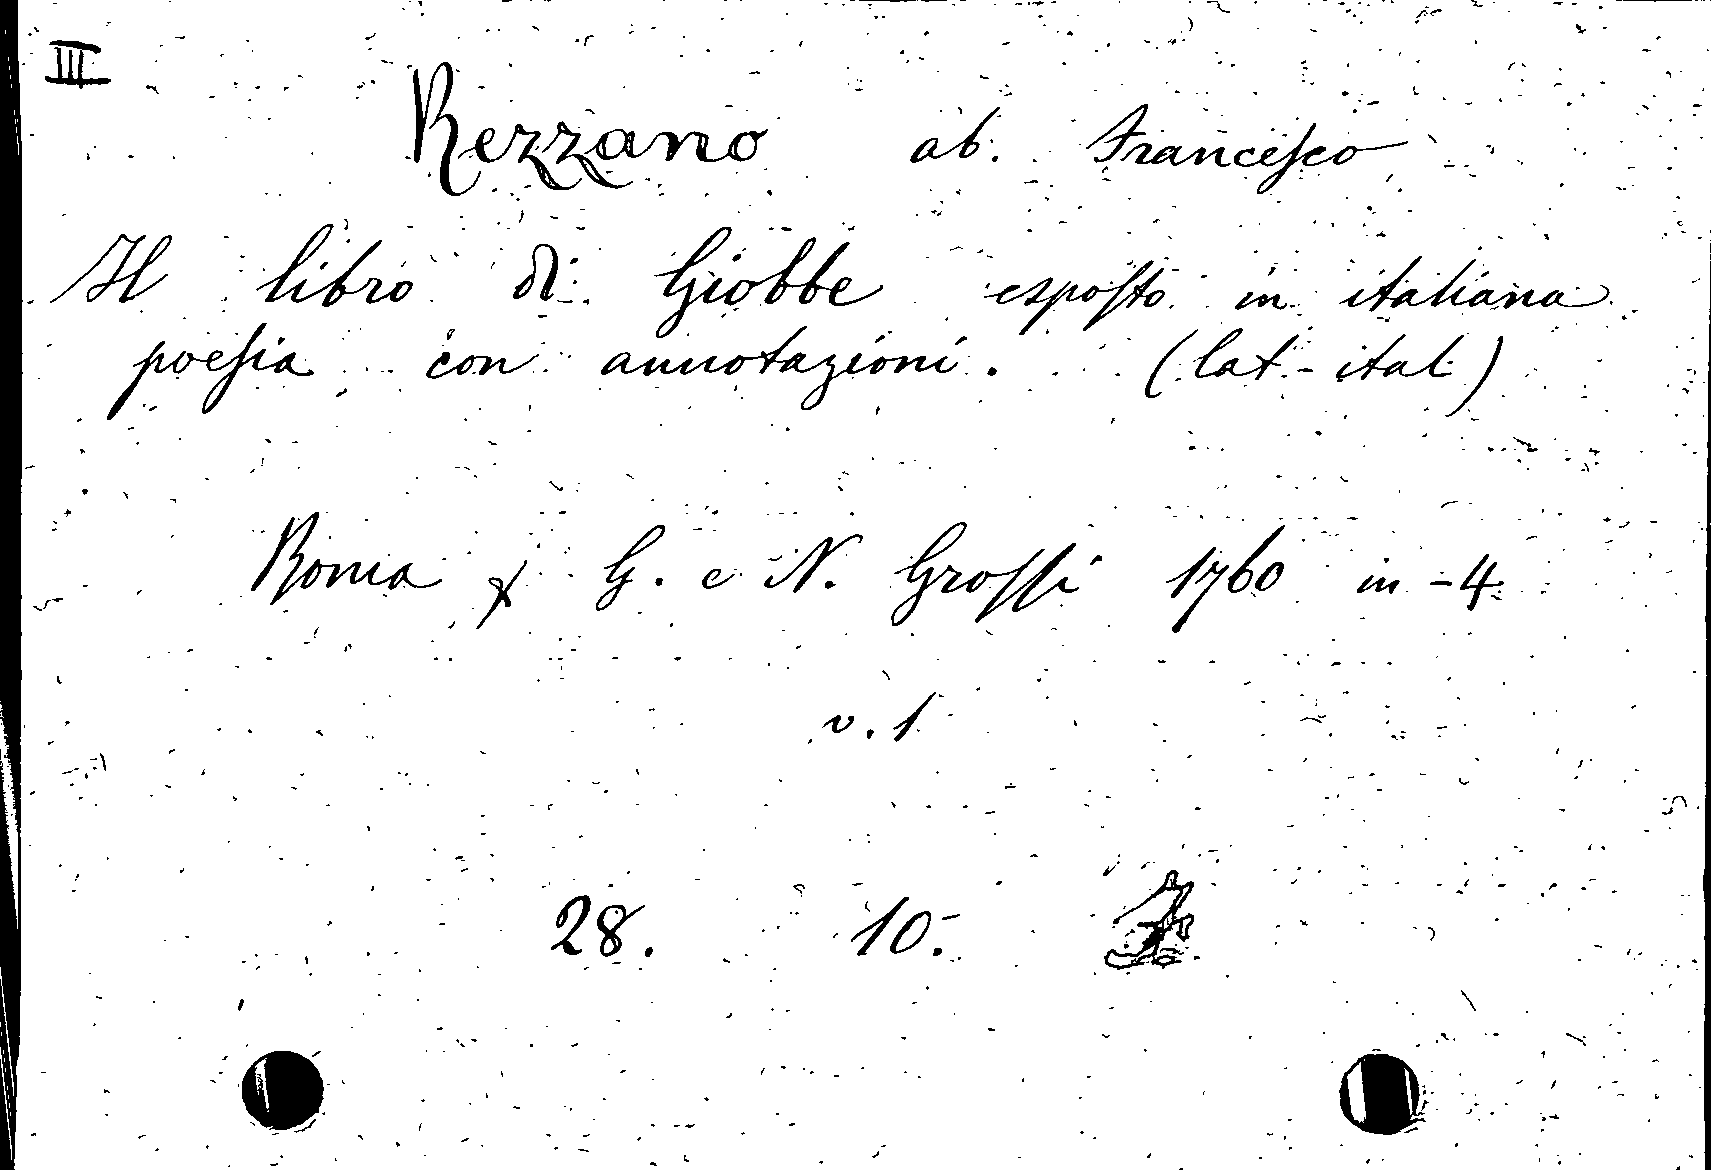 III
Rezzano ab. Francesco
Il libro di Giobbe esposto in italiana
poesia con annotazioni. (lat.-ital)
Roma G. e N. Grossi 1760 in-4
v. 1
28. 10.